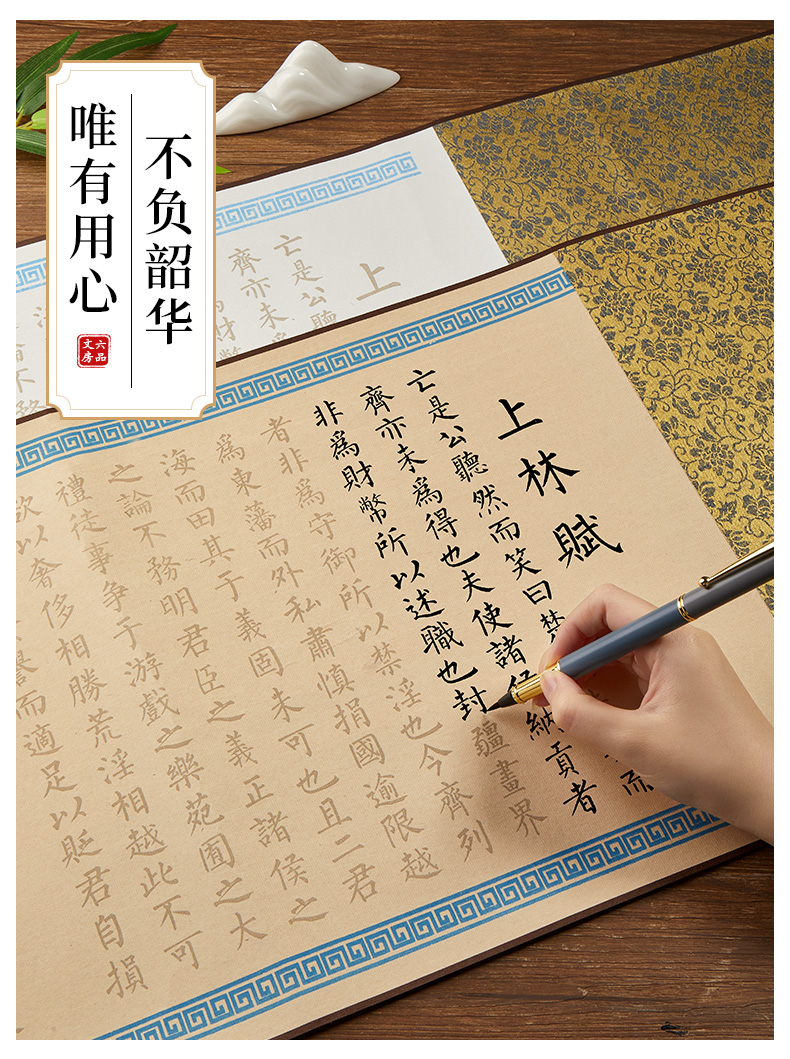 不负韶华
唯有用心
六品
文房
上
亡是公聽
齊亦未爲
財幣
上林賦
亡是公聽然而笑曰楚
齊亦未爲得也夫使諸侯納貢者
非爲財幣所以述職也封疆畫界
者非爲守御所以禁淫也今齊列
爲東藩而外私肅慎捐國逾限越
海而田其于義固未可也且二君
之論不務明君臣之義正諸侯之
禮徒事争于游戲之樂苑囿之大
欲以奢侈相勝荒淫相越此不可
譽而適足以貶君自損